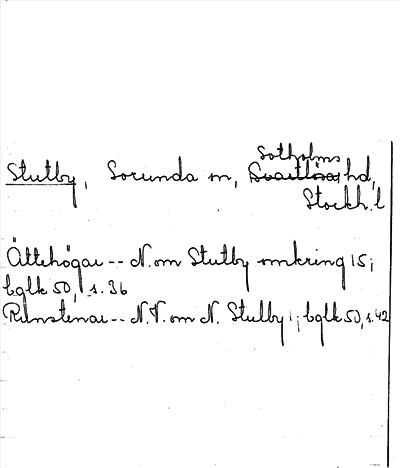 Sotholms
Stutby, Sorunda sn, Svartlösa hd,
Stockh. l
Ättehögar -- N. om Stutby omkring 15;
bglk 50, s. 36
Runstenar -- N.V. om N. Stutby 1; bglk 50, s. 42